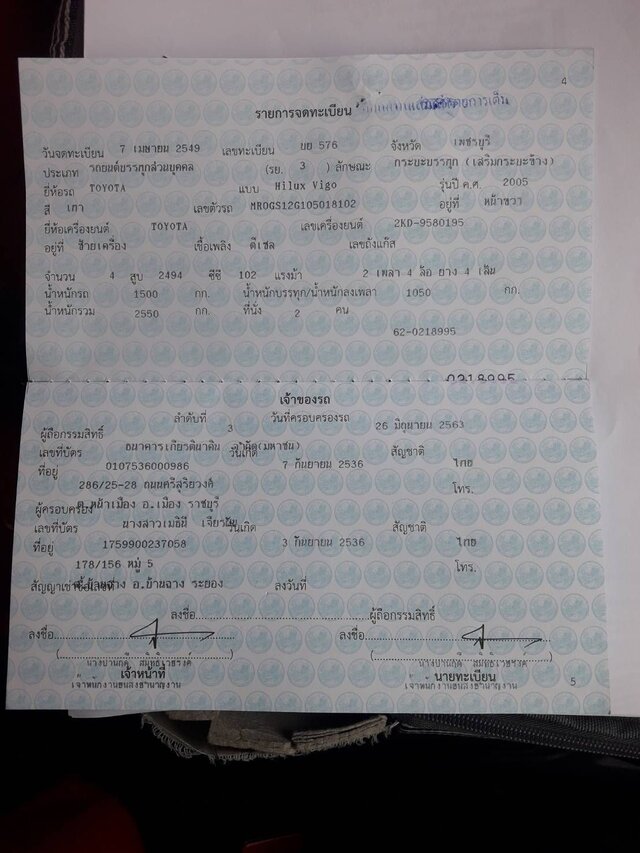 4
รายการจดทะเบียน
วันจดทะเบียน 7 เมษายน 2549 เลขทะเบียน บย 576 จังหวัด เพชรบุรี
ประเภท รถยนต์บรรทุกส่วนบุคคล (รย. 3 ) ลักษณะ กระบะบรรทุก (เสริมกระบะข้าง)
ยี่ห้อรถ TOYOTA แบบ Hilux Vigo รุ่นปี ค.ศ. 2005
สี เทา เลขตัวรถ MR0GS12G105018102 อยู่ที่ หน้าขวา
ยี่ห้อเครื่องยนต์ TOYOTA เลขเครื่องยนต์ 2KD-9580195
อยู่ที่ ซ้ายเครื่อง เชื้อเพลิง ดีเซล เลขถังแก๊ส
จำนวน 4 สูบ 2494 ซีซี 102 แรงม้า 2 เพลา 4 ล้อ ยาง 4 เส้น
น้ำหนักรถ 1500 กก. น้ำหนักบรรทุก/น้ำหนักลงเพลา 1050 กก.
น้ำหนักรวม 2550 กก. ที่นั่ง 2 คน
62-0218995
0218995
เจ้าของรถ
ลำดับที่ 3 วันที่ครอบครองรถ 26 มิถุนายน 2563
ผู้ถือกรรมสิทธิ์ ธนาคารเกียรตินาคิน จำกัด(มหาชน)
เลขที่บัตร 0107536000986 วันเกิด 7 กันยายน 2536 สัญชาติ ไทย
ที่อยู่ 286/25-28 ถนนศรีสุริยวงศ์ โทร.
ต.หน้าเมือง อ.เมือง ราชบุรี
ผู้ครอบครอง นางสาวเมธินี
เลขที่บัตร 1759900237058 วันเกิด 3 กันยายน 2536 สัญชาติ ไทย
ที่อยู่ 178/156 หมู่ 5 โทร.
ต.บ้านฉาง อ.บ้านฉาง ระยอง
สัญญาเช่าซื้อเลขที่ ลงวันที่
ลงชื่อ ผู้ถือกรรมสิทธิ์
ลงชื่อ ลงชื่อ
เจ้าหน้าที่ นายทะเบียน
5